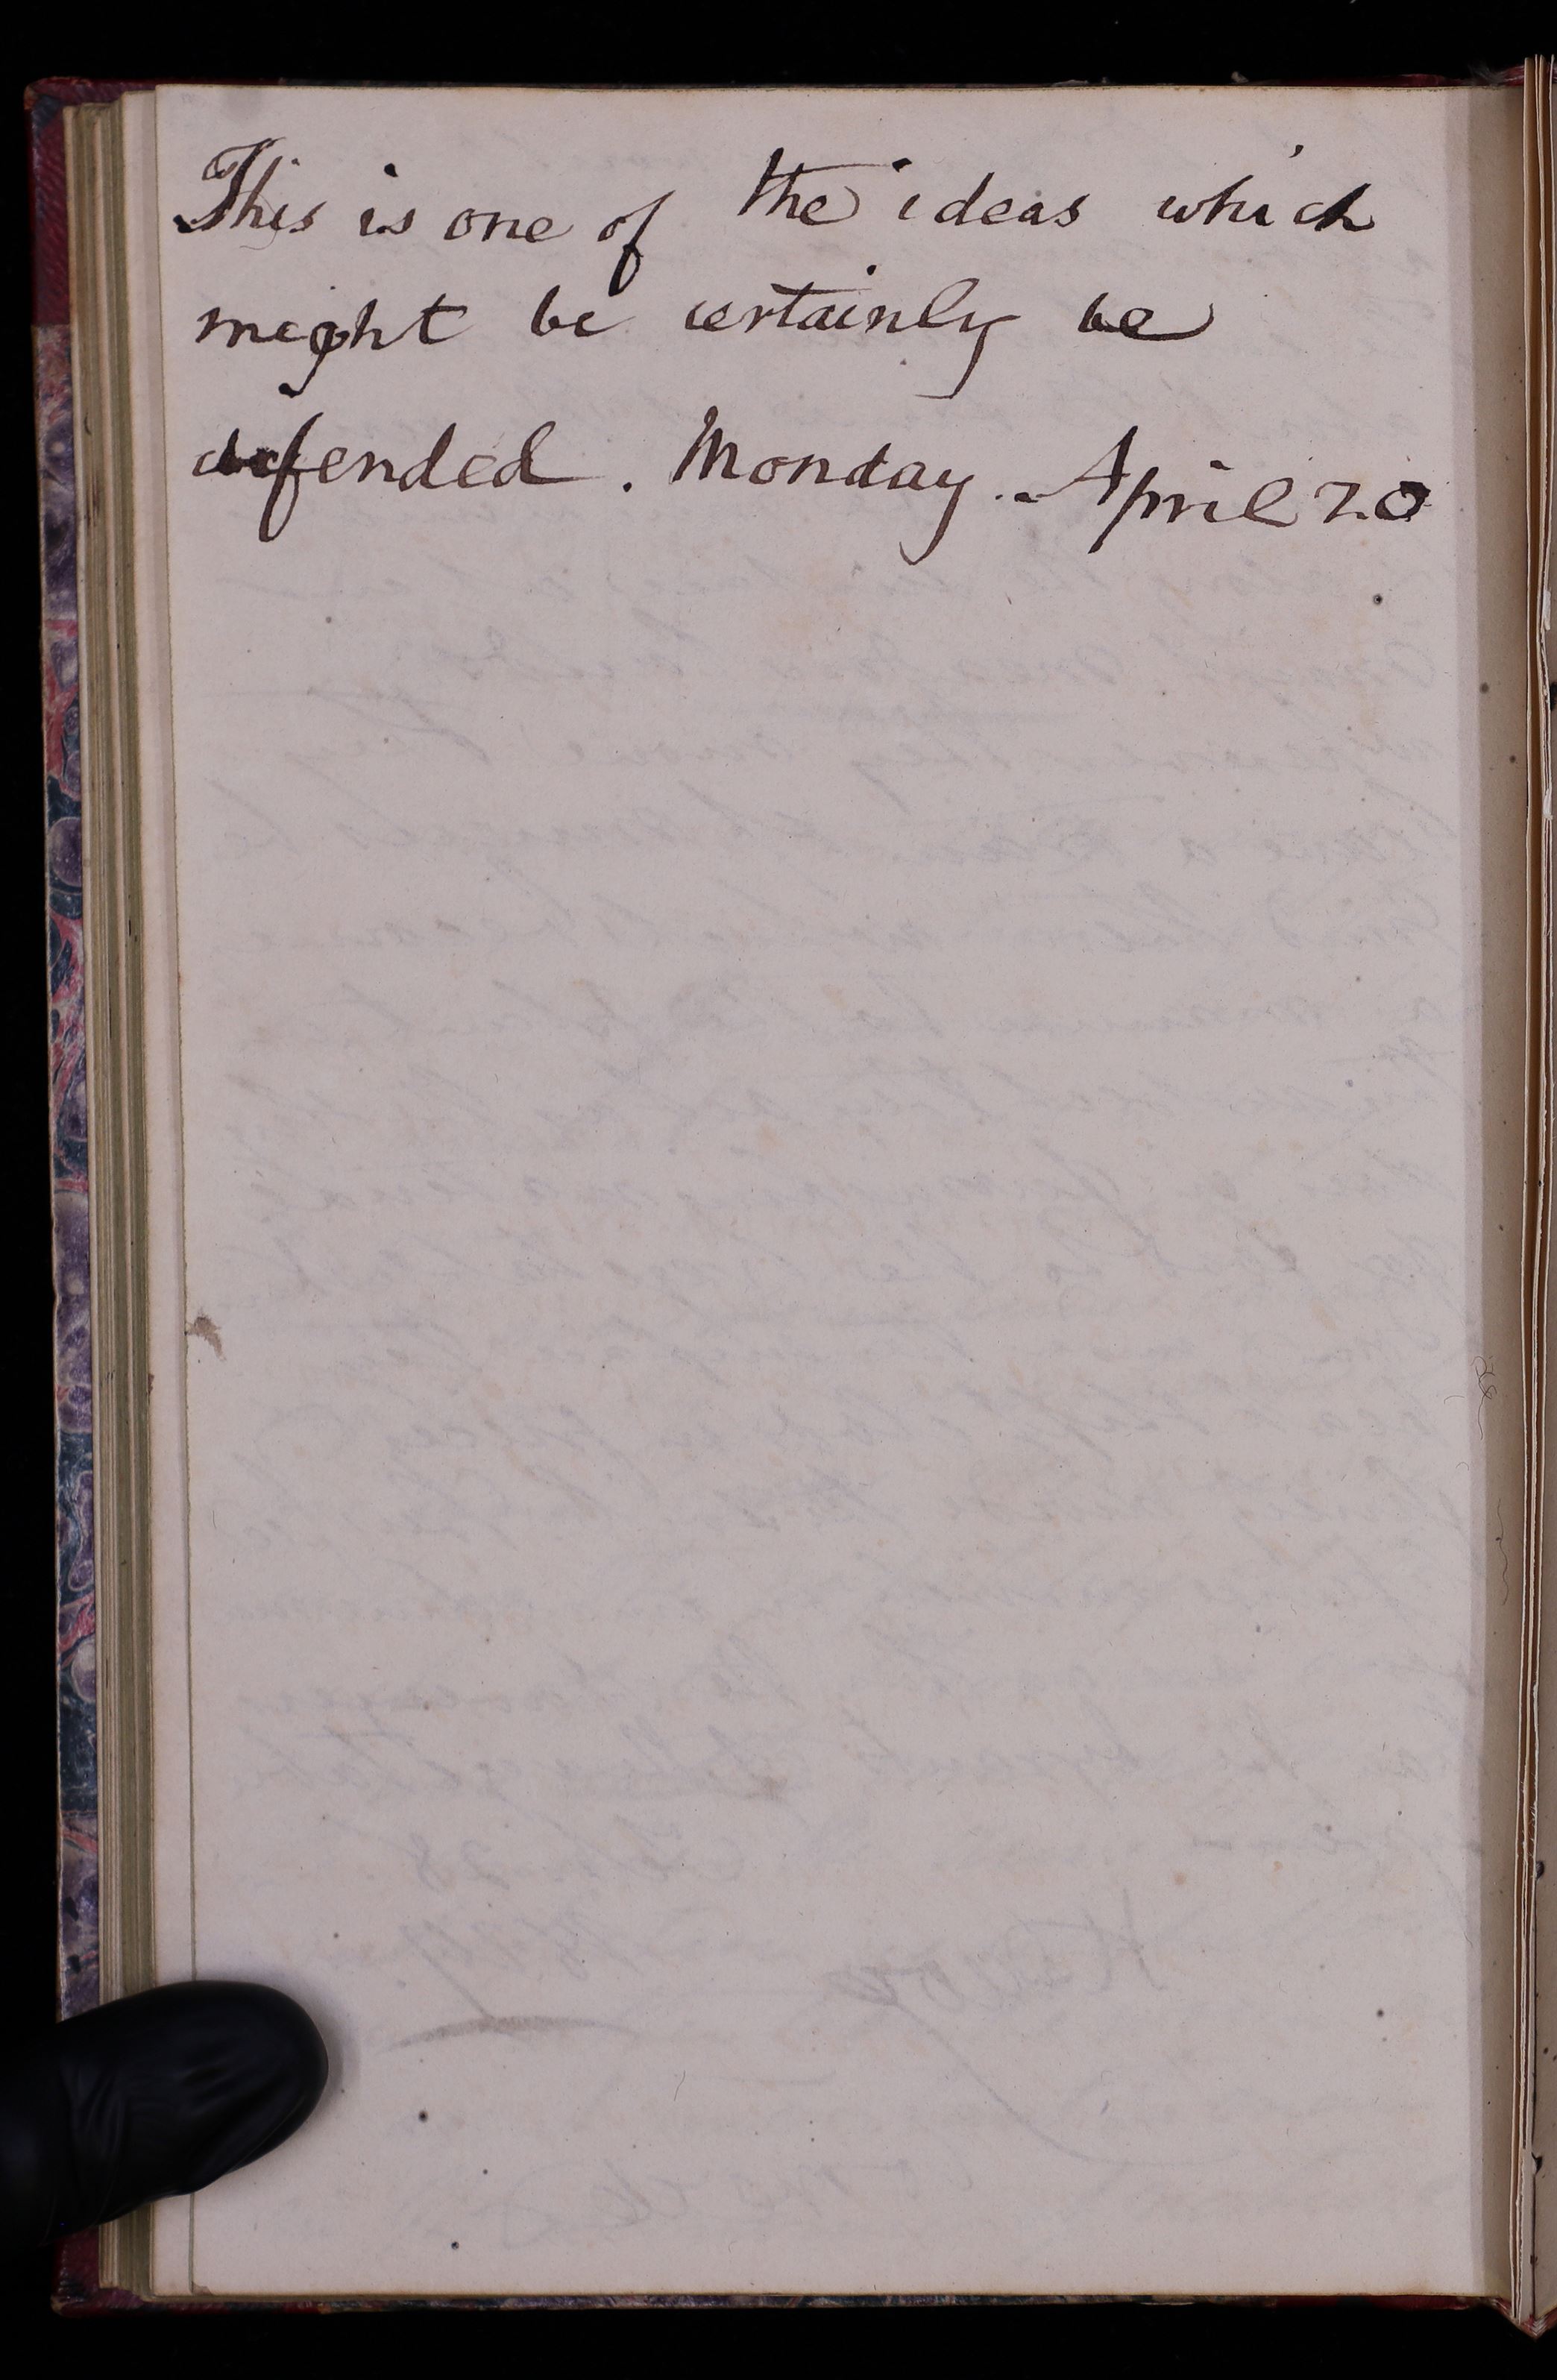 This is one of the ideas which
might be certainly be
defended. Monday. April 20